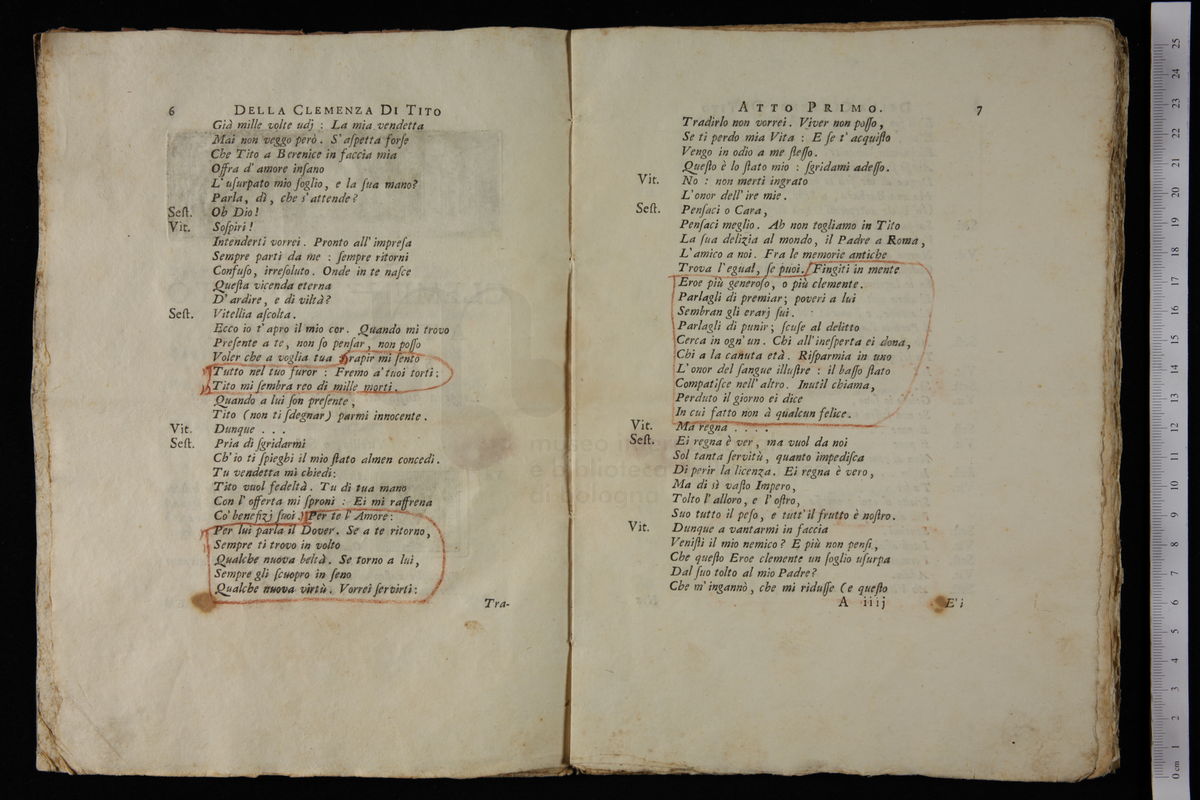 6 DELLA CLEMENZA DI TITO
Già mille volte udj : La mia vendetta
Mai non veggo però . S'aſpetta forſe
Che Tito a Berenice in faccia mia
Offra d'amore inſano
L'uſurpato mio ſoglio , e la ſua mano?
Parla , dì , che s'attende?
Seſt. Oh Dio!
Vit. Soſpiri!
Intenderti vorrei . Pronto all' impreſa
Sempre parti da me : ſempre ritorni
Confuſo , irreſoluto . Onde in te naſce
Queſta vicenda eterna
D'ardire , e di viltà?
Seſt. Vitellia aſcolta .
Ecco io t'apro il mio cor . Quando mi trovo
Preſente a te , non ſo penſar , non poſſo
Voler che a voglia tua : rapir mi ſento
Tutto nel tuo furor : Fremo a' tuoi torti :
Tito mi ſembra reo di mille morti .
Quando a lui ſon preſente ,
Tito (non ti ſdegnar) parmi innocente .
Vit. Dunque . . .
Seſt. Pria di ſgridarmi
Ch'io ti ſpieghi il mio ſtato almen concedi .
Tu vendetta mi chiedi :
Tito vuol fedeltà . Tu di tua mano
Con l'offerta mi ſproni : Ei mi raffrena
Co' benefizj ſuoi . Per te l'Amore :
Per lui parla il Dover . Se a te ritorno ,
Sempre ti trovo in volto
Qualche nuova beltà . Se torno a lui ,
Sempre gli ſcuopro in ſeno
Qualche nuova virtù . Vorrei ſervirti :
Tra-
ATTO PRIMO. 7
Tradirlo non vorrei . Viver non poſſo ,
Se ti perdo mia Vita : E ſe t'acquiſto
Vengo in odio a me ſteſſo .
Queſto è lo ſtato mio : ſgridami adeſſo .
Vit. No : non merti ingrato
L'onor dell'ire mie .
Seſt. Penſaci o Cara ,
Penſaci meglio . Ah non togliamo in Tito
La ſua delizia al mondo , il Padre a Roma ,
L'amico a noi . Fra le memorie antiche
Trova l'egual , ſe puoi . Fingiti in mente
Eroe più generoſo , o più clemente .
Parlagli di premiar ; poveri a lui
Sembran gli erarj ſui .
Parlagli di punir ; ſcuſe al delitto
Cerca in ogn'un . Chi all'ineſperta ei dona ,
Chi a la canuta età . Riſparmia in uno
L'onor del ſangue illuſtre : il baſſo ſtato
Compatiſce nell'altro . Inutil chiama ,
Perduto il giorno ei dice
In cui fatto non à qualcun felice .
Vit. Ma regna . . . .
Seſt. Ei regna è ver , ma vuol da noi
Sol tanta ſervitù , quanto impediſca
Di perir la licenza . Ei regna è vero ,
Ma di sì vaſto Impero ,
Tolto l'alloro , e l'oſtro ,
Suo tutto il peſo , e tutt'il frutto è noſtro .
Vit. Dunque a vantarmi in faccia
Veniſti il mio nemico? E più non penſi ,
Che queſto Eroe clemente un ſoglio uſurpa
Dal ſuo tolto al mio Padre?
Che m'ingannò , che mi riduſſe (e queſto
A iiij E' i